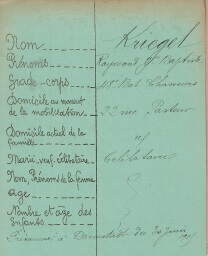 Nom Kriegel
Prénoms Raymond Jn Baptiste
Grade-corps 41e Bat Chasseurs
Domicile au moment de la mobilisation 22 rue Pasteur
Domicile actuel de la famille
Marié, veuf, célibataire Célibataire
Nom, Prénoms de la femme
Age
Nombre et âge des Enfants
Prisonnier à Darmstadt du 30 juin